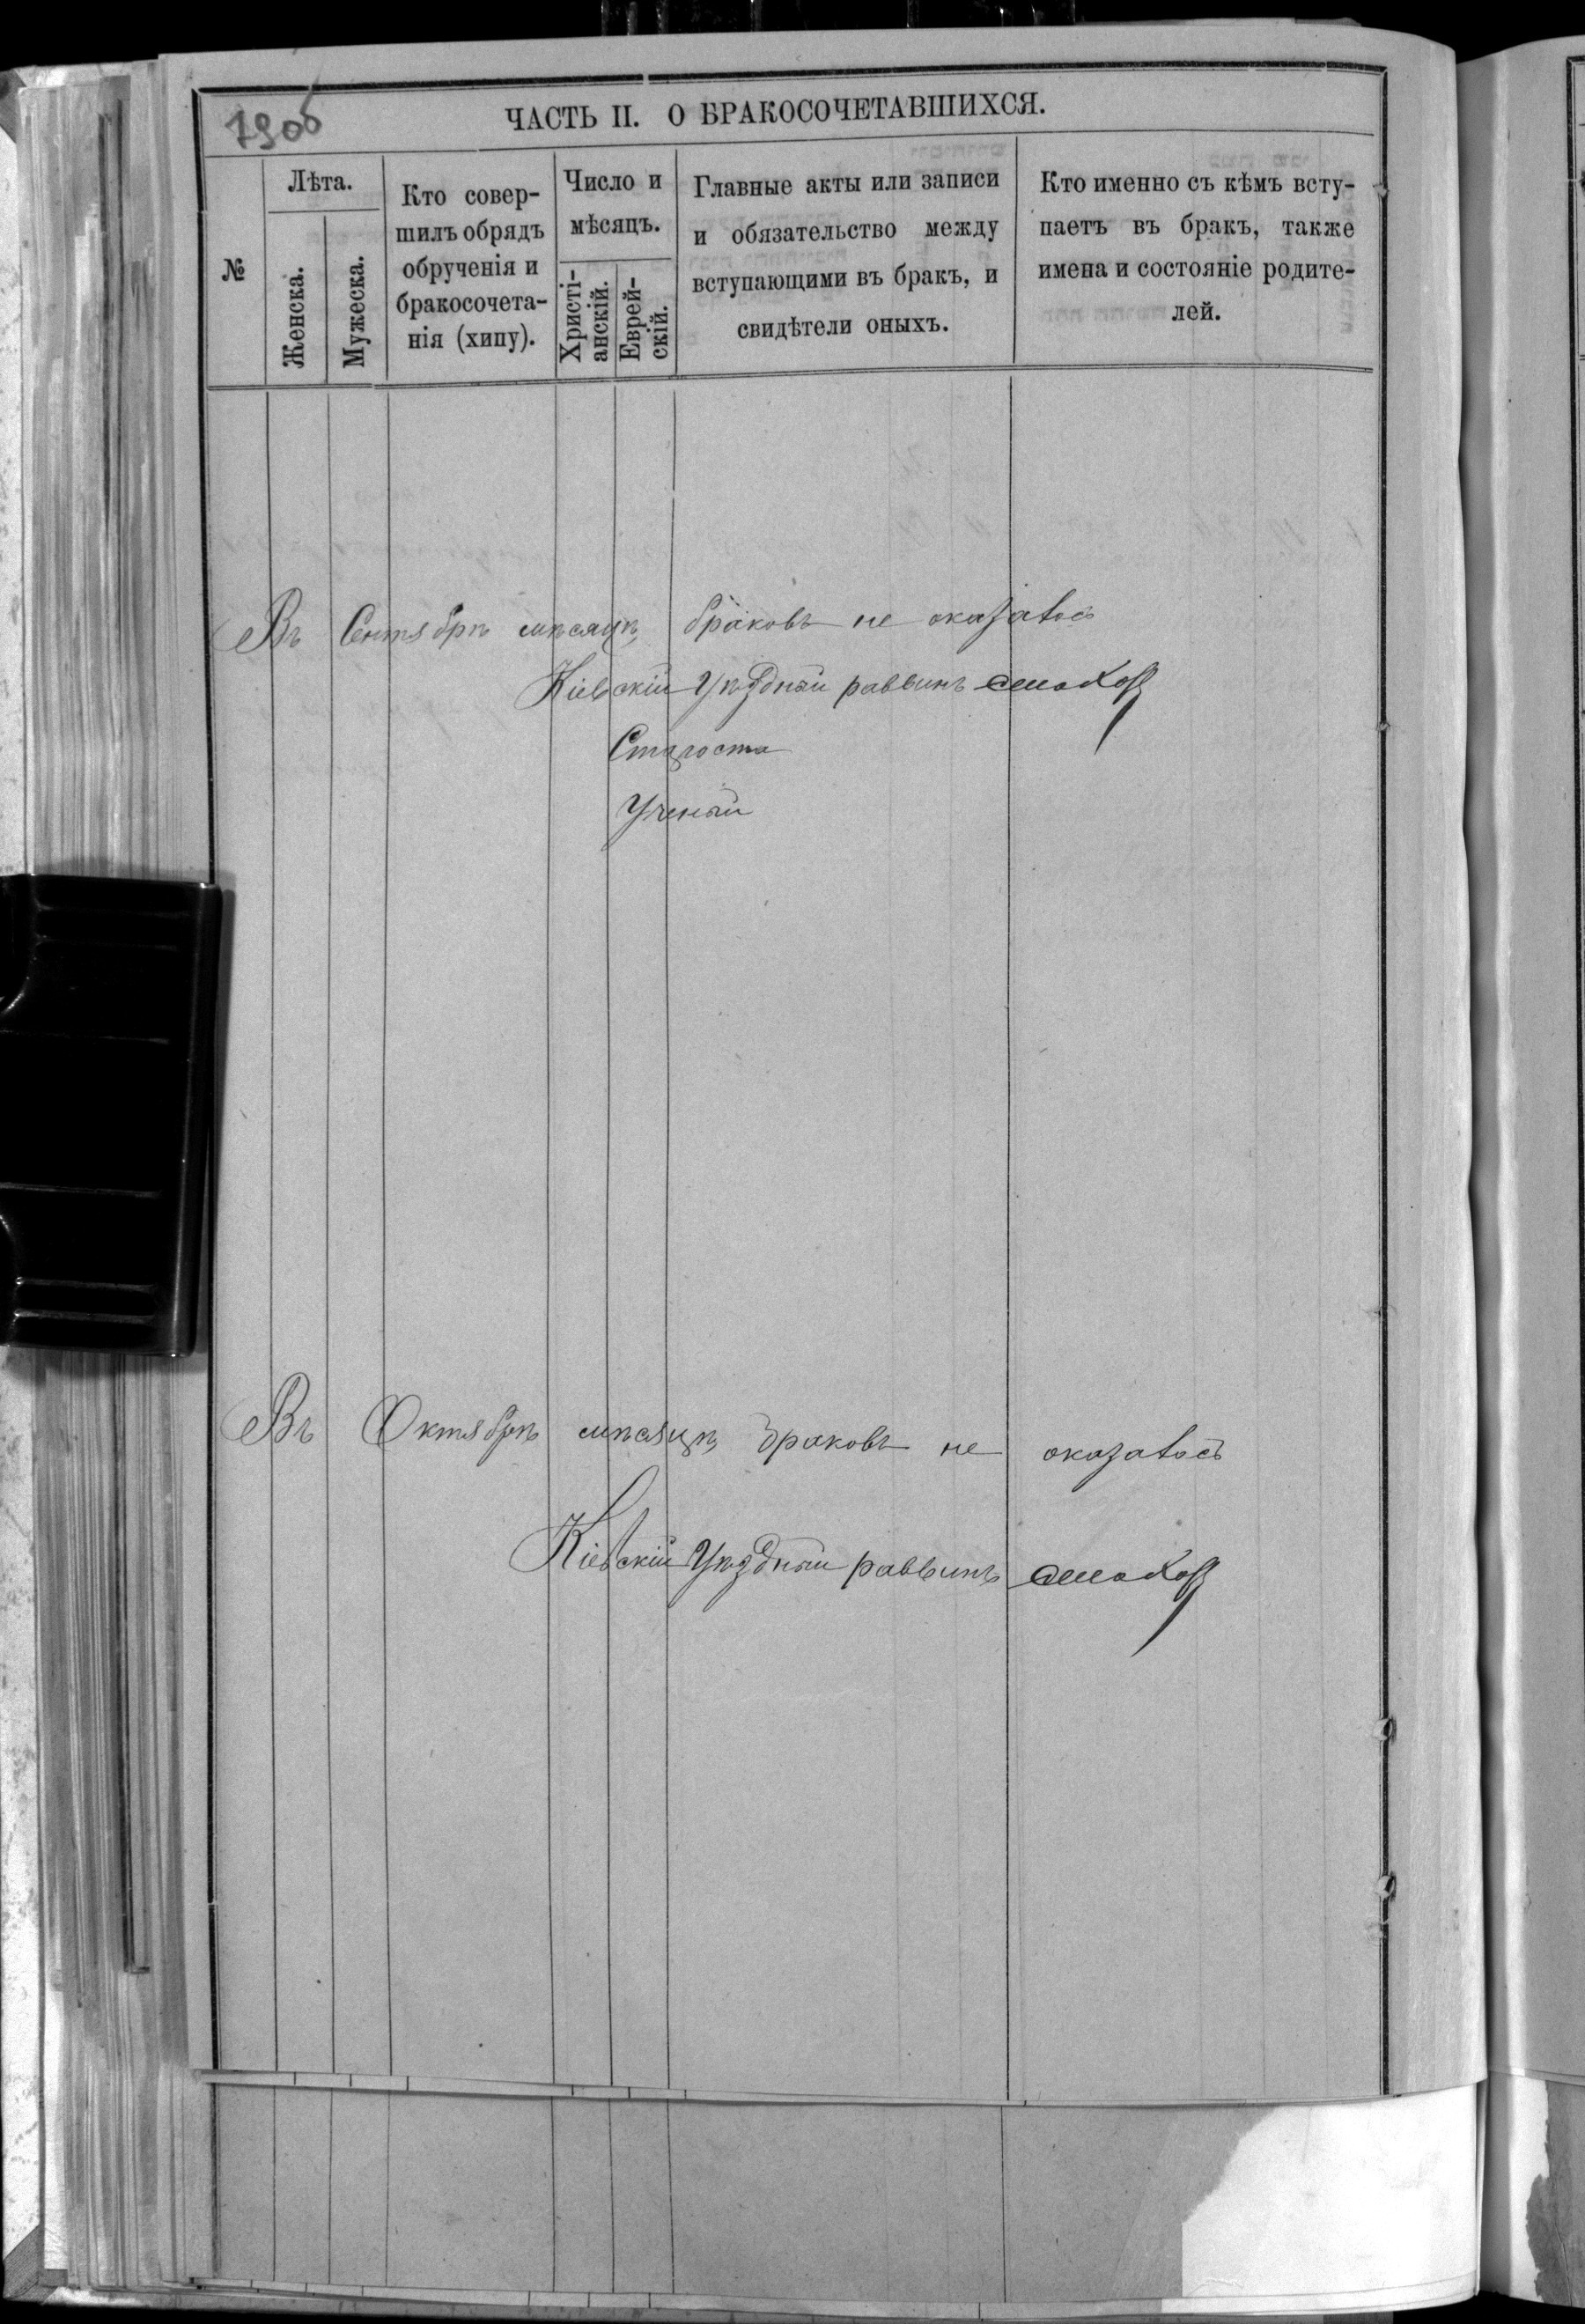 790б
ЧАСТЬ II. О БРАКОСОЧЕТАВШИХСЯ.
№
Лѣта.
Женска.
Мужеска.
Кто совер-
шилъ обрядъ
обрученія и
бракосочета-
нія (хипу).
Число и
мѣсяцъ.
Христі-
анскій.
Еврей-
скій.
Главные акты или записи
и обязательство между
вступающими въ бракъ, и
свидѣтели оныхъ.
Кто именно съ кѣмъ всту-
паетъ въ бракъ, также
имена и состояніе родите-
лей.
Въ Сентябрѣ мѣсяцѣ браковъ не оказалось
Кіевскій Уѣздный раввинъ
Староста
Ученый
Въ Октябрѣ мѣсяцѣ браковъ не оказалось
Кіевскій Уѣздный раввинъ